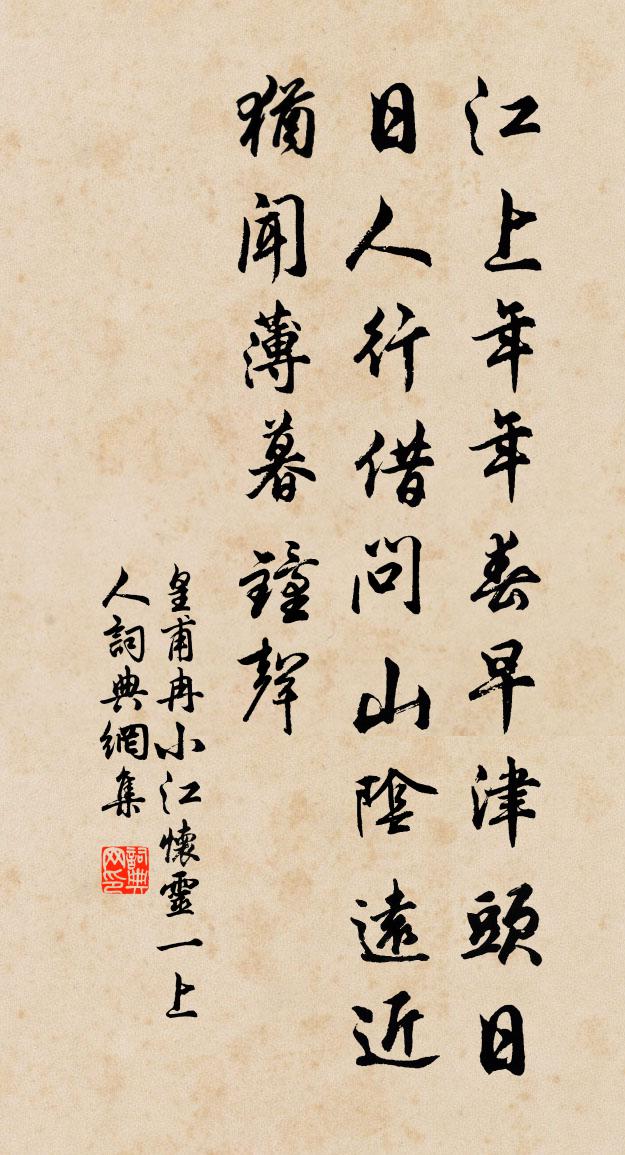 江上年年春早津頭日
日人行借問山陰遠近
猶聞薄暮鐘聲
皇甫冉小江懷靈一上
人詞典網集
詞典
网印